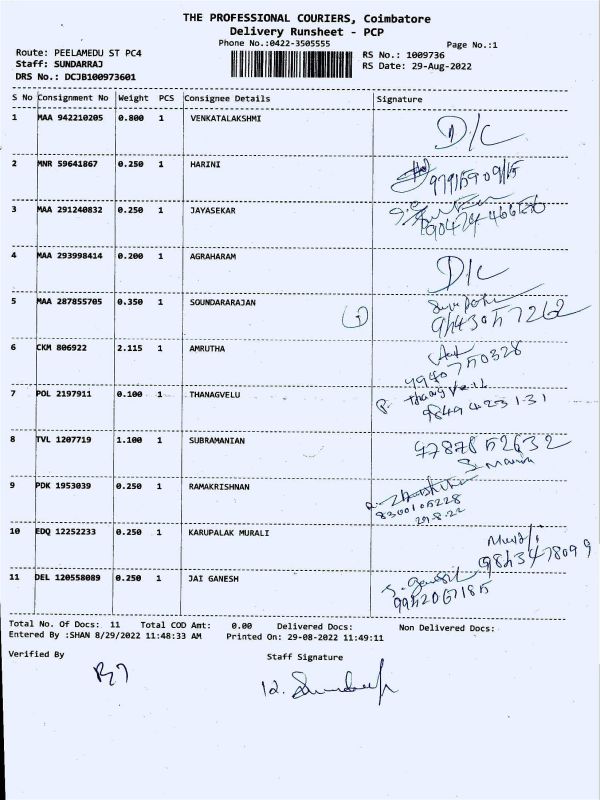 THE PROFESSIONAL COURIERS, Coimbatore
Delivery Runsheet - PCP
Phone No.:0422-3505555
Page No.:1
Route: PEELAMEDU ST PC4
RS No.: 1009736
Staff: SUNDARRAJ
RS Date: 29-Aug-2022
DRS No.: DCJB100973601
S No Consignment No Weight PCS Consignee Details Signature
1 MAA 942210205 0.800 1 VENKATALAKSHMI D/C
2 MNR 59641867 0.250 1 HARINI
3 MAA 291240832 0.250 1 JAYASEKAR
4 MAA 293998414 0.200 1 AGRAHARAM D/C
5 MAA 287855705 0.350 1 SOUNDARARAJAN
6 CKM 806922 2.115 1 AMRUTHA
9940750328
7 POL 2197911 0.100 1 THANAGVELU
8 TVL 1207719 1.100 1 SUBRAMANIAN
9 PDK 1953039 0.250 1 RAMAKRISHNAN
8300105228
29.8.22
10 EDQ 12252233 0.250 1 KARUPALAK MURALI
11 DEL 120558089 0.250 1 JAI GANESH
Total No. Of Docs: 11 Total COD Amt: 0.00 Delivered Docs: Non Delivered Docs:
Entered By :SHAN 8/29/2022 11:48:33 AM Printed On: 29-08-2022 11:49:11
Verified By
Staff Signature